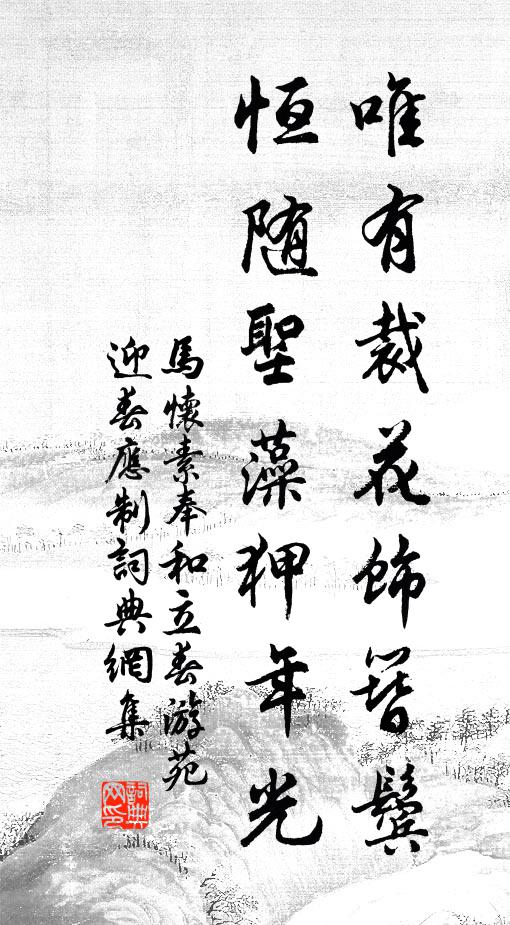 唯有裁花飾簪鬢
恒隨聖藻狎年光
馬懷素奉和立春游苑
迎春應制詞典網集
詞典網印